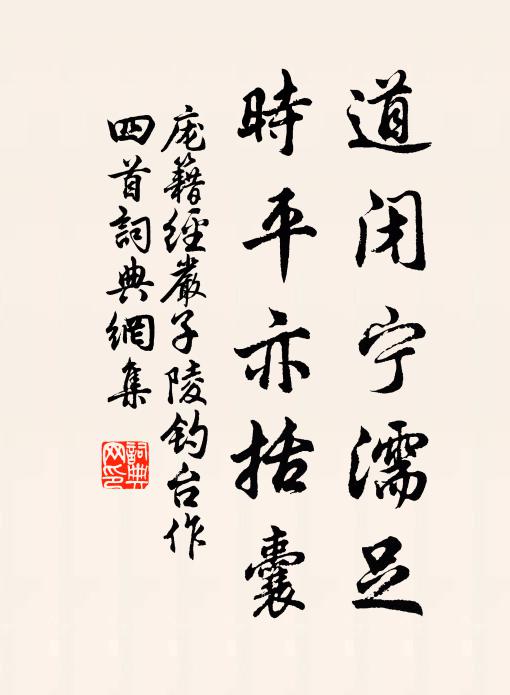 道闭宁濡足
時平亦括囊
庞籍經嚴子陵钓台作
四首詞典網集
詞典网印